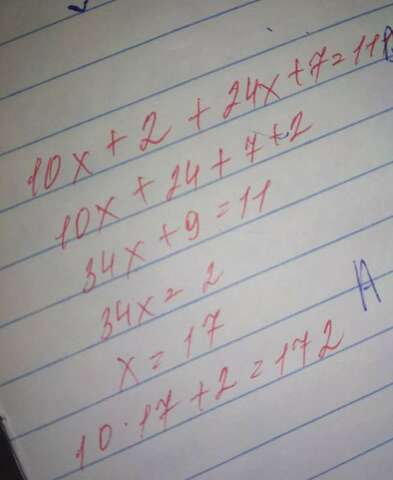 10x + 2 + 24x + 7 = 11
10x + 24 + 7 + 2
34x + 9 = 11
34x = 2
x = 17
10 · 17 + 2 = 172
A